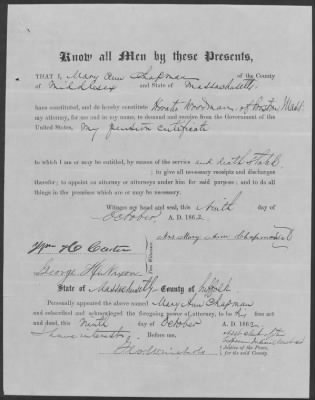 Know all Men by these Presents,
THAT I, Mary Ann Chapman of the County
of Middlesex and State of Massachusetts
have constituted, and do hereby constitute Horatio Woodman, of Boston Mass.
my attorney, for me and in my name, to demand and receive from the Government of the
United States, My pension certificate
to which I am or may be entitled, by reason of the service and death
; to give all necessary receipts and discharges
therefor; to appoint an attorney or attorneys under him for said purpose; and to do all
things in the premises which are or may be necessary.
Witness my hand and seal, this Ninth day of
October A. D. 1862
Mrs. Mary Ann Chapman
Wm H Carter
George
State of Massachusetts County of Suffolk
Personally appeared the above named Mary Ann Chapman
and subscribed and acknowledged the foregoing power of attorney, to be her free act
and deed, this Ninth day of October A. D. 1862
I have no interest Before me,
Justice of the Peace,
for the said County.